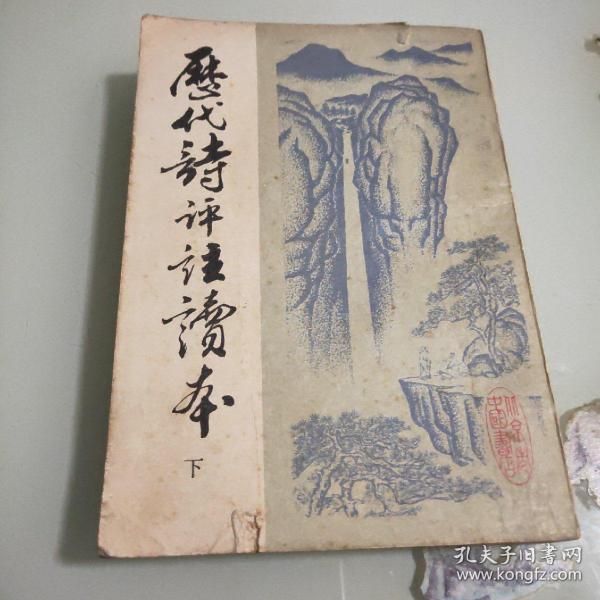 歷代詩评註讀本
下
北京市
中國書店
孔夫子旧书网
www.kongfz.com